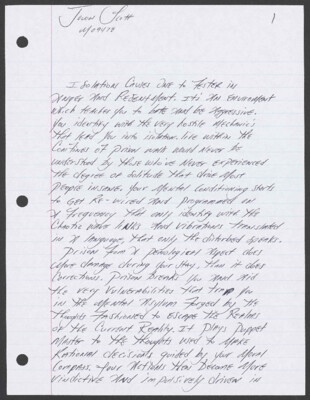 1
Isolation Causes One to Fester in
Anger and Resentment. It's an Environment
which teaches you to hate and be Aggressive.
You identify with the very hostile Mechanics
that lead you into isolation. Life within the
Confines of prison walls would never be
understood by those who've never experienced
the degree of solitude that drive most
people insane. Your mental Conditioning starts
to get Re-wired and programmed on
A frequency that only identify with the
Chaotic and vibrations translated
in A language, that only the disturbed speaks.
Prison from A penological aspect does
more damage during your stay, than it does
Corrections. Prison Breaks you and
the very Vulnerabilities that trap you
in the Mental Asylum forged by the
thoughts fashioned to escape the Realms
of the Current Reality. It Plays Puppet
Master to the thoughts used to Make
Rational decisions guided by your Moral
Compass. Your Actions then Become More
Vindictive and impulsively driven in